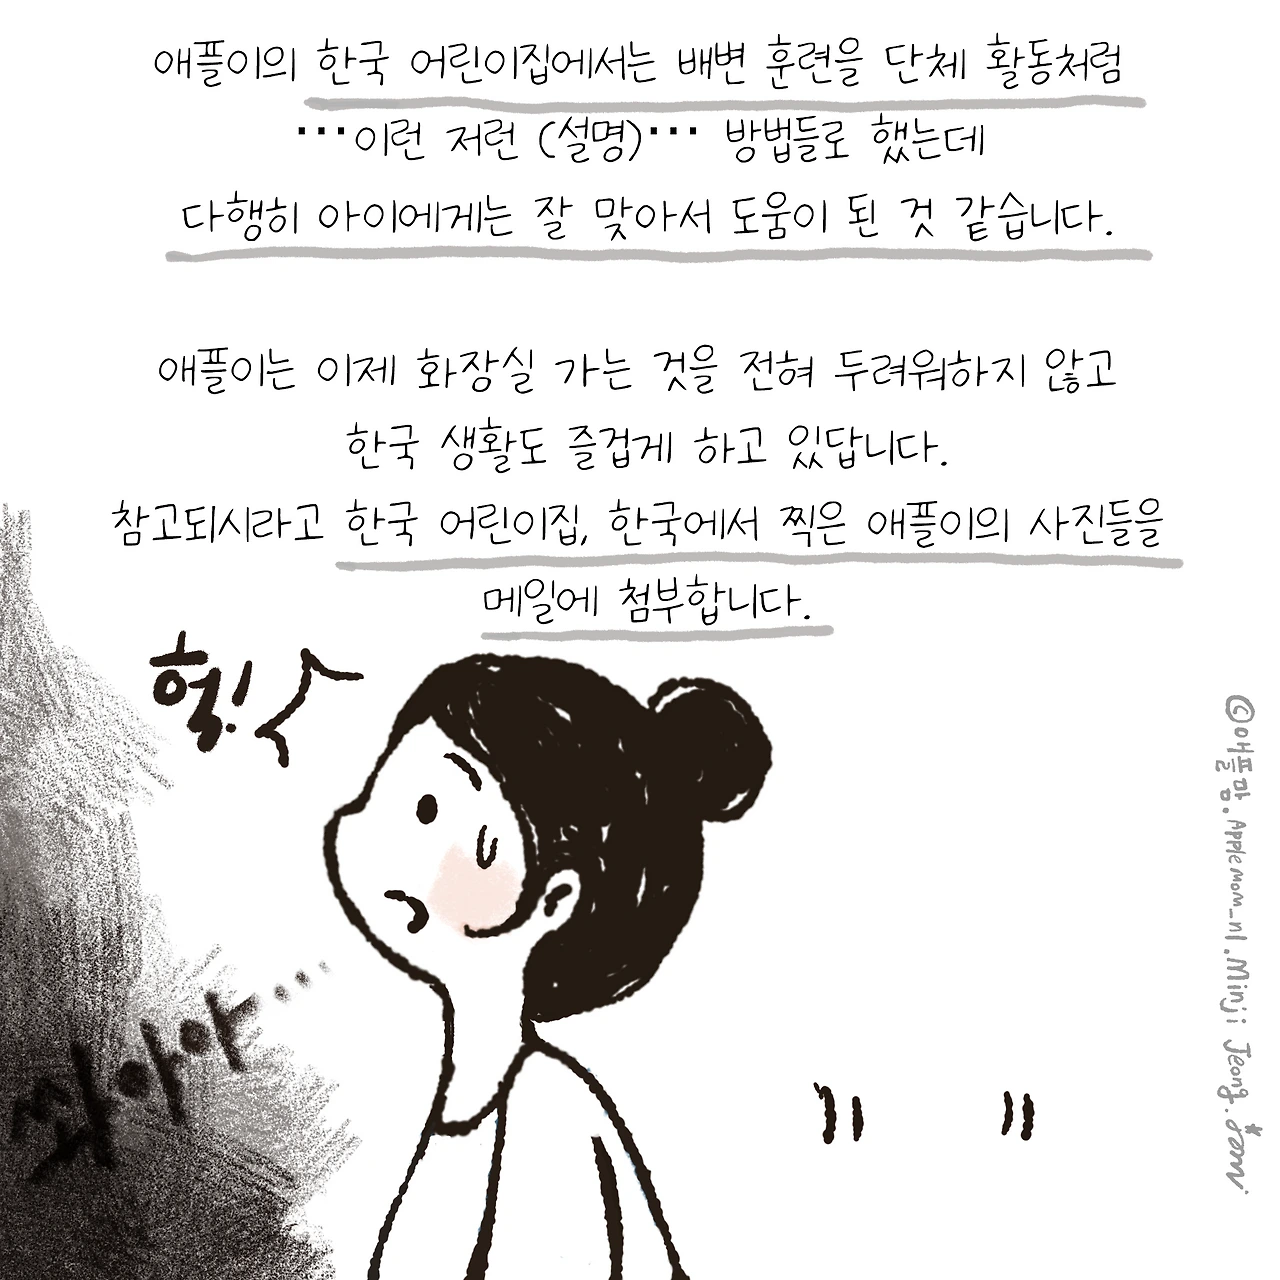 애플이의 한국 어린이집에서는 배변 훈련을 단체 활동처럼
···이런 저런 (설명)··· 방법들로 했는데
다행히 아이에게는 잘 맞아서 도움이 된 것 같습니다.
애플이는 이제 화장실 가는 것을 전혀 두려워하지 않고
한국 생활도 즐겁게 하고 있답니다.
참고되시라고 한국 어린이집, 한국에서 찍은 애플이의 사진들을
메일에 첨부합니다.
헐!
쏴아아...
©애플맘.Applemom_nl.Minji Jeong.